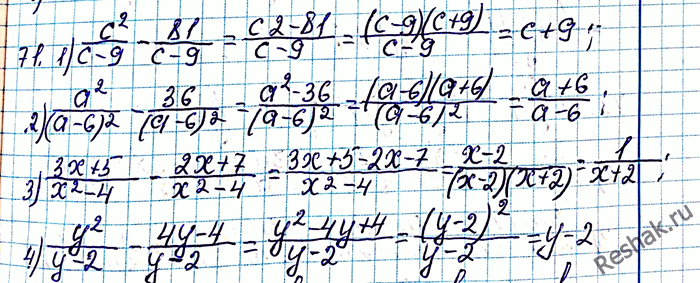 71. 1) c²/(c-9) - 81/(c-9) = (c2-81)/(c-9) = (c-9)(c+9)/(c-9) = c+9;
2) a²/(a-6)² - 36/(a-6)² = (a²-36)/(a-6)² = (a-6)(a+6)/(a-6)² = (a+6)/(a-6);
3) (3x+5)/(x²-4) - (2x+7)/(x²-4) = (3x+5-2x-7)/(x²-4) = (x-2)/((x-2)(x+2)) = 1/(x+2);
4) y²/(y-2) - (4y-4)/(y-2) = (y²-4y+4)/(y-2) = (y-2)²/(y-2) = y-2
Reshak.ru